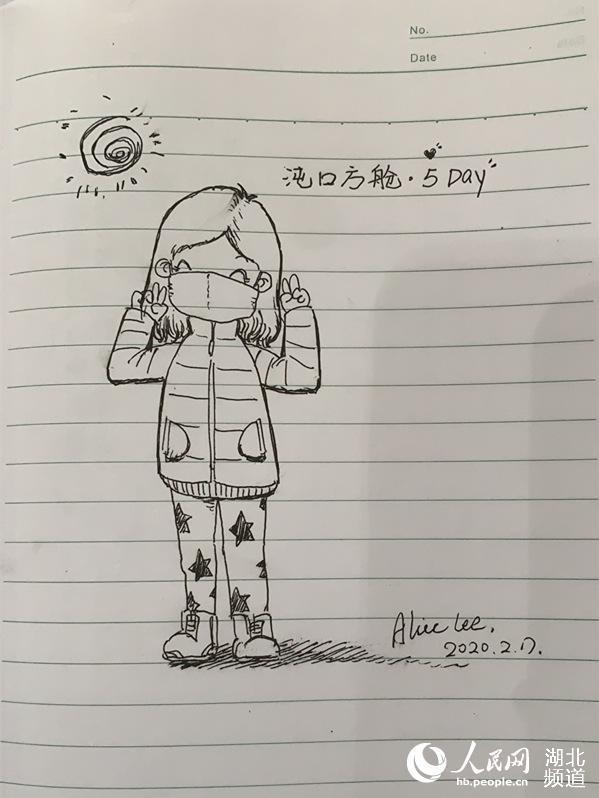 No.
Date
沌口方舱·5 Day
Alice Lee.
2020.2.17.
人民网 湖北频道
hb.people.cn